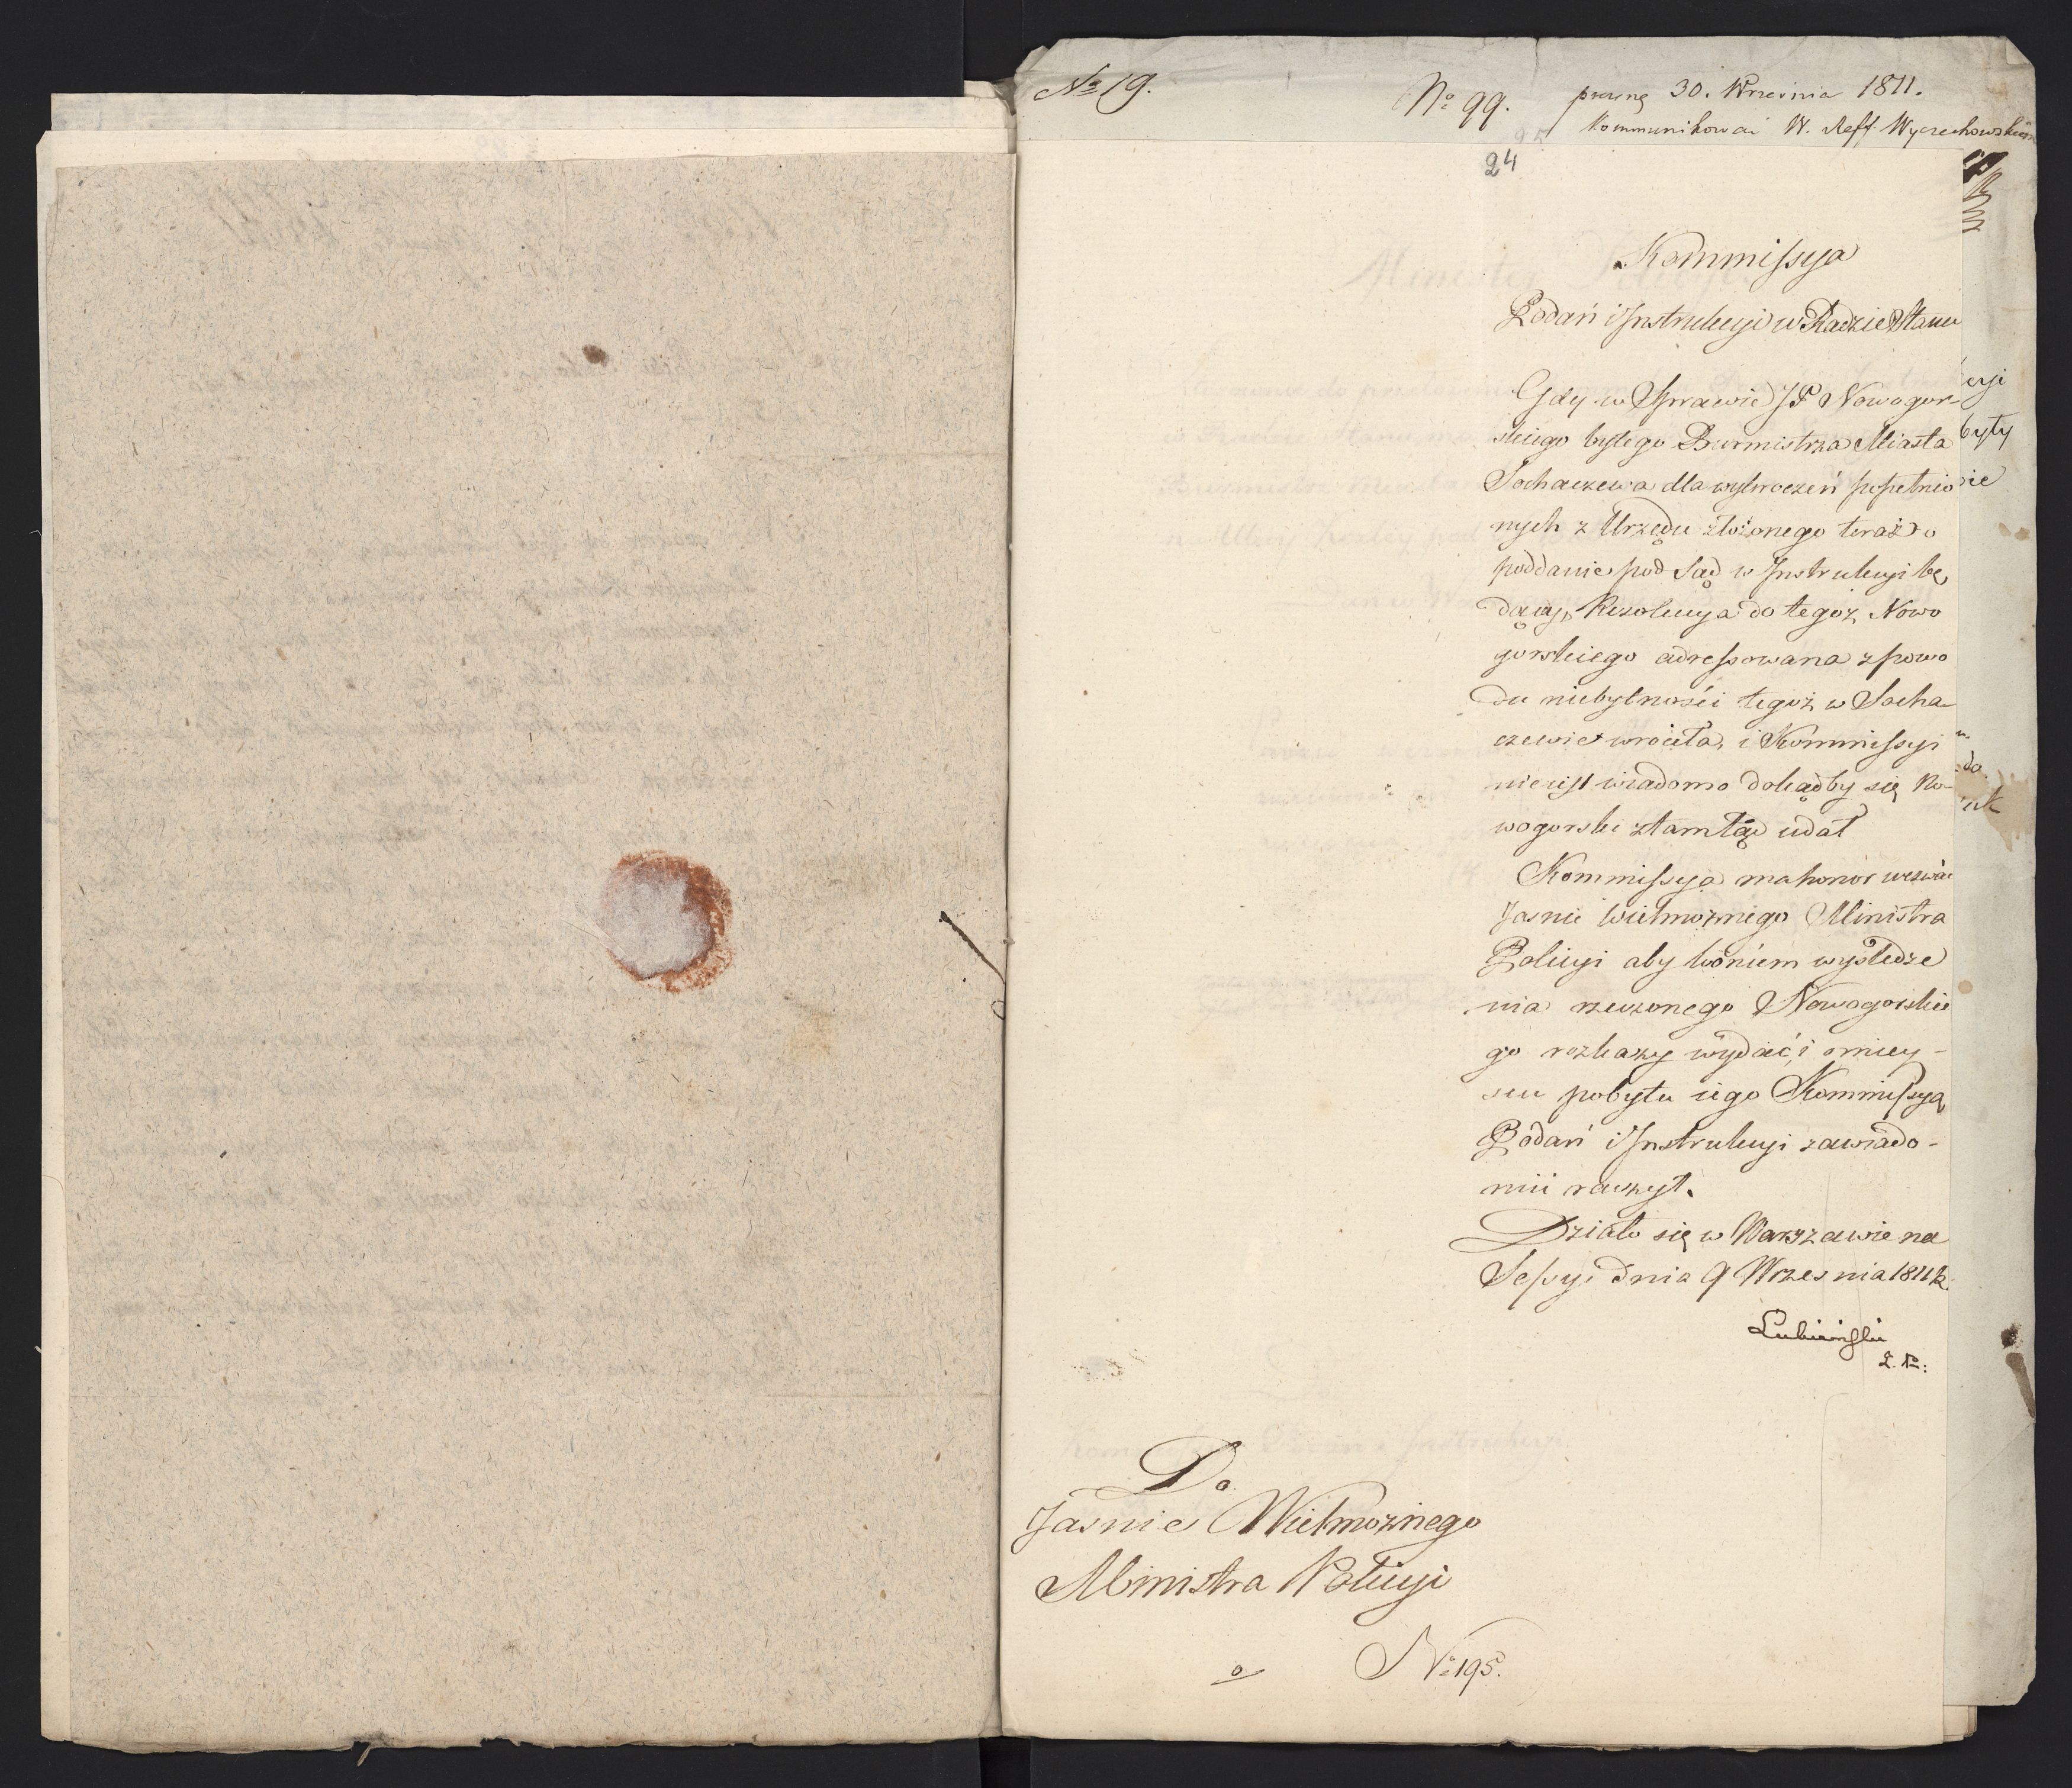 No 19.
No 99. 30. Września 1811.
Kommunikować W. Reff. Wyczechowskiem
24
Kommissya
Podań i Instrukcyi w Radzie Stanu
Gdy w Sprawie JP Nowogor-
skiego byłego Burmistrza Miasta
Sochaczewa dla wykroczeń popełnio
nych z Urzędu złożonego teraz o
poddanie pod Sąd w Instrukcyi bę
dącey, Rezolucya do tegoż Nowo
gorskiego adressowana z powo
du niebytności tegoż w Socha-
czewie wrociła, i Kommissyi
nie iest wiadomo dokądby się No-
wogorski ztamtąd udał
Kommissya ma honor wezwać
Jasnie Wielmożnego Ministra
Policyi aby końcem wyśledze
nia rzeczonego Nowogorskie
go rozkazy wydać, i o miey-
scu pobytu iego Kommissyą
Podań i Instrukcyi zawiado-
mić raczył.
Działo się w Warszawie na
Sessyi dnia 9 Września 1811 R.
Łubieński
Do
Jasnie Wielmożnego
Ministra Policyi
No 195.
cyi
były
ie
do